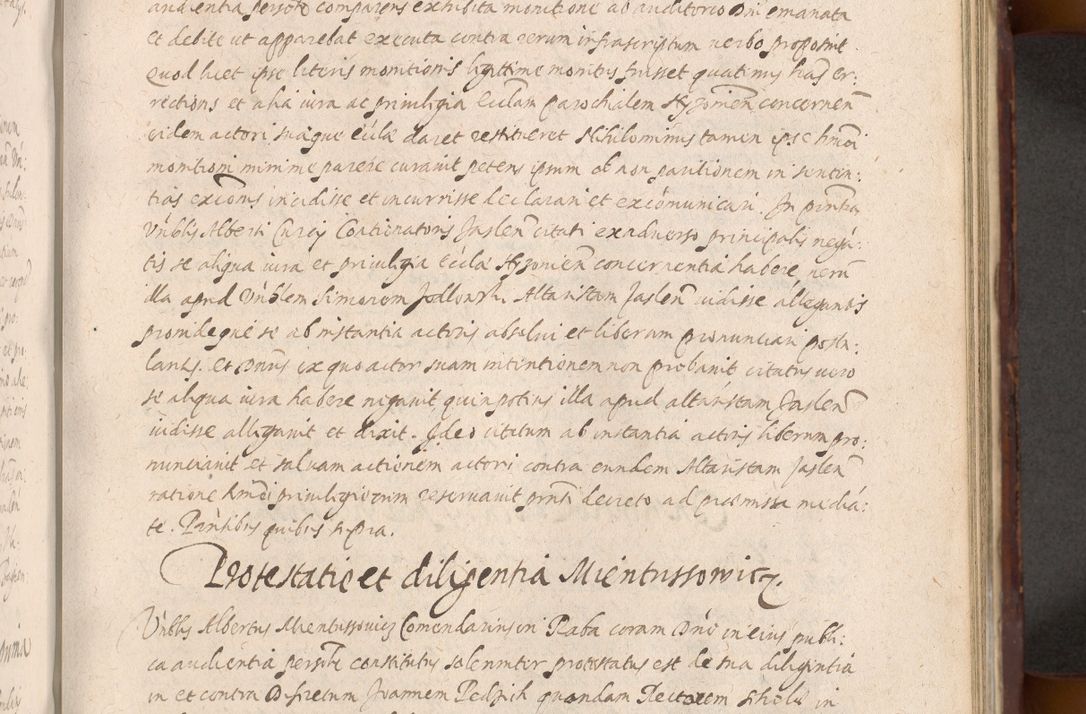 audientia personaliter comparens exhibita monitione ab auditoreo Dni emanata
et debite ut apparebat executa contra eerum infrascriptum verbo proposuit
quod licet ipse literis monitionis legittime monitus fuisset quatimus has er:
rections et alia iura ac priuilegia Ecclam parochialem Hyzonien concernen
eidem actori suaque eccla daret restitueret Nihilominus tamen ipse hmoi
monitioni minime parere curauit petens ipsum ob non paritionem in senten:
tias excionis incidisse et incurrisse declarari et excomunicari. In pntia
Vnblis Alberti Curaj Contionatoris Jaslen citati ex aduerso principalis negan:
tis se aliqua iura et priuilegia Eccla Hyzonien concernentia habere, uerum
illa apud Vnblem Simonem Jedlonsk, Altaristam Jaslen uidisse allegantis
proindeque se ab instantia actoris absolui et liberum pronunciari postu:
lantis. Et Dnus ex quo actor suam intentionem non probauit citatus uero
se aliqua iura habere negauit quin potius illa apud altaristam Jaslen
uidisse allegauit et dixit. Ideo citatum ab instantia actoris liberum pro:
nunciauit et saluam actionem actori contra eundem Altaristam Jaslen
ratione hmoi priuilegiorum reseruauit pnti decreto ad praemissa media:
te. Pntibus quibus supra.
Protestatio et diligentia Mientussowicz
Vnblis Albertus Mientussowicz Comendarius in Raba coram Dno in eius publi:
ca audientia personalr constitutus solenniter protestatus est de sua diligentia
in et contra Discretum Joannem Pelzik quondam Rectorem scholae in